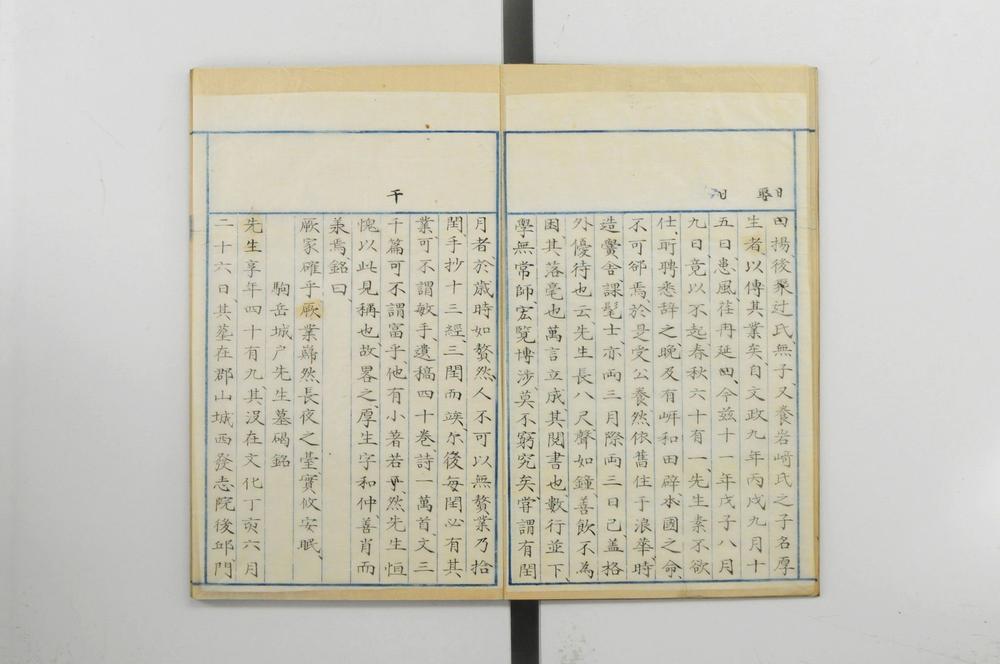 日 聘
日
田揚後象辻氏、無子、又養岩﨑氏之子名厚
生者、以傳其業矣、自文政九年丙戌九月十
五日、患風、荏苒延田、今兹十一年戊子八月
九日、竟以不起、春秋六十有一、先生素不欲
仕、所聘悉辞之、晚及有岼和田辟、本國之命、
不可郤焉、於是受公養、然依舊住于浪華、時
造黌舍課髦士、亦両三月際両三日已、盖格
外優待也云、先生長八尺、聲如鐘、善飲不為
困、其落毫也、萬言立成、其閲書也、數行並下、
學無常師、宏覽博涉、莫不窮究矣、甞謂有閏
月者、於歳時如贅然、人不可以無贅業、乃拾
閏手抄十三經、三閏而竢、尓後每閏必有其
業、可不謂敏乎、遺稿四十巻、詩一萬首、文三
干
千篇、可不謂富乎、他有小著若乎、然先生恒
愧以此見稱也、故畧之、厚生字和仲、善肖而
兼焉、銘曰、
厥家確乎、厥業巋然、長夜之臺、實攸安眠、
駒岳城戶先生墓碣銘
先生享年四十有九、其沒在文化丁亥六月
二十六日、其墓在郡山城西發志院後邱、門